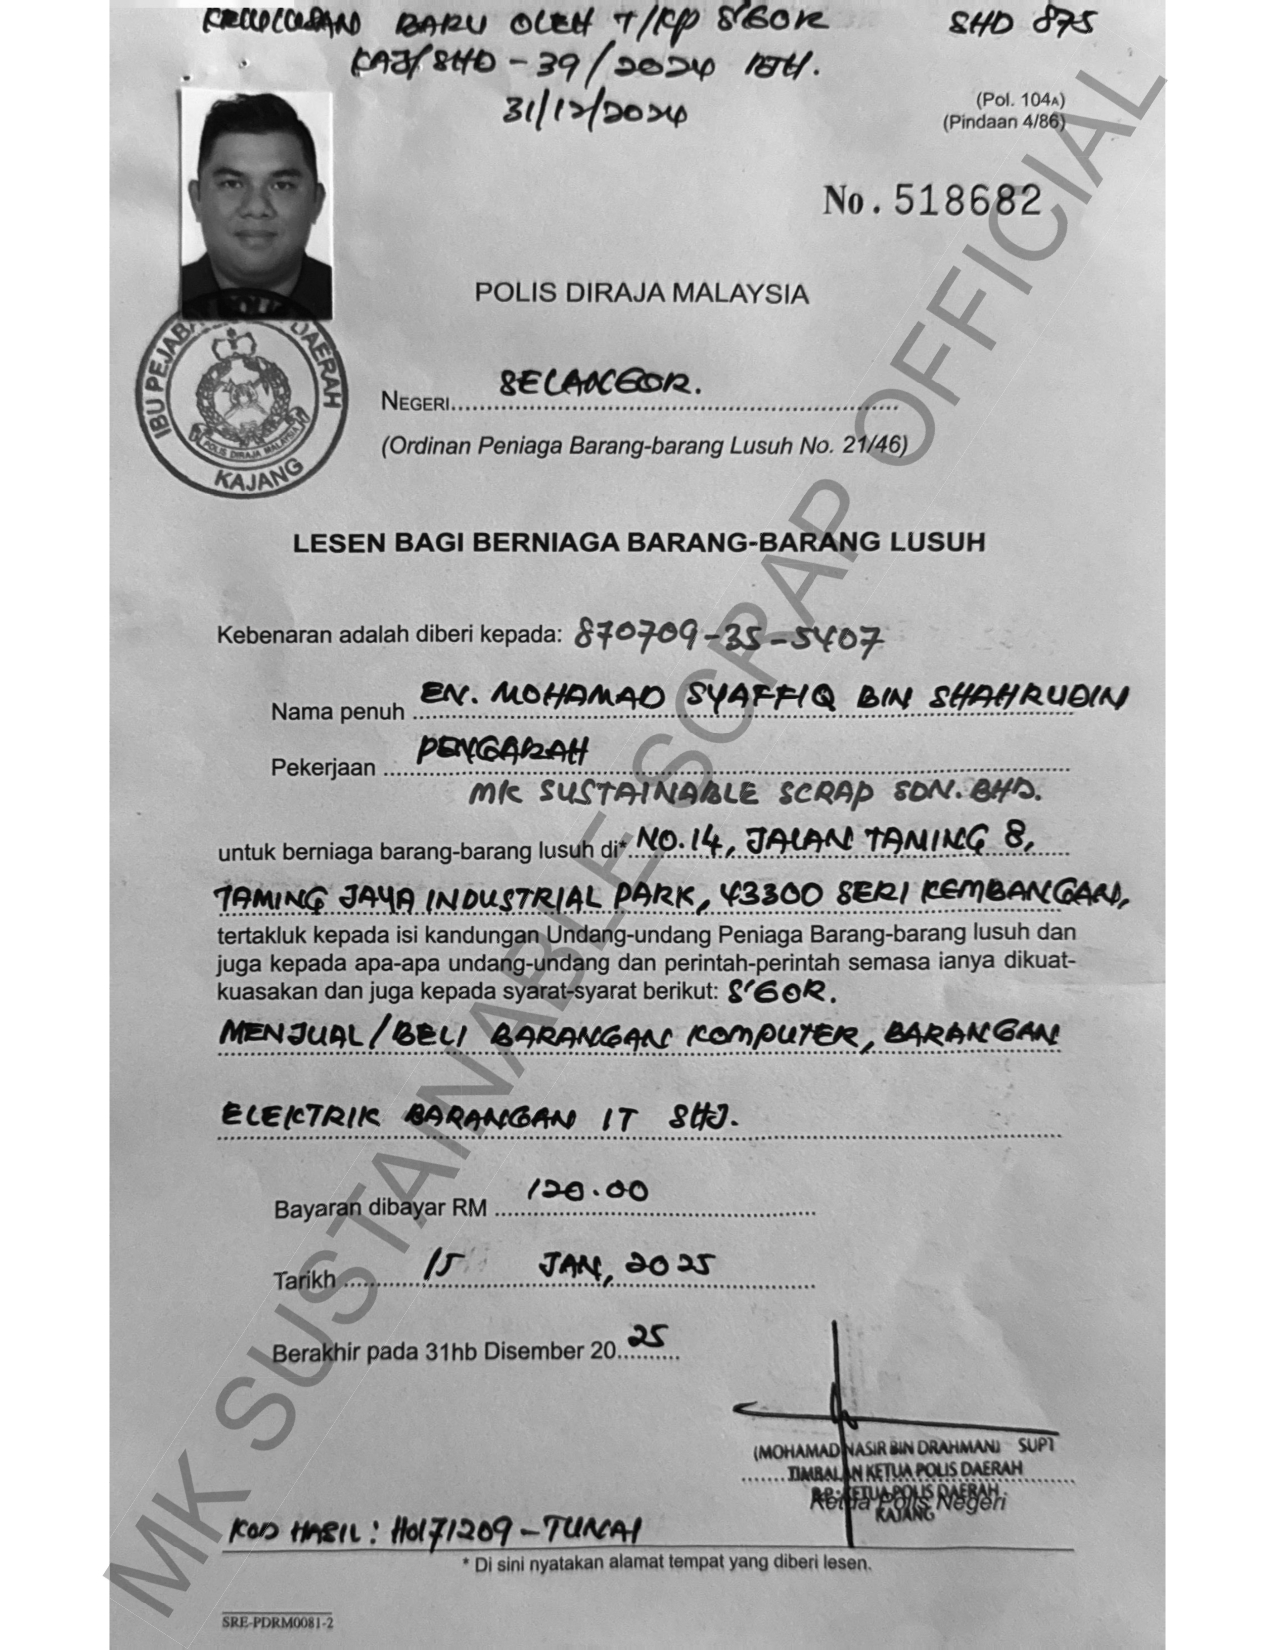 KELULUSAN BARU OLEH T/KP S'GOR SHD 875
KAJ/SHD - 39/2024 BTH.
31/12/2024
(Pol. 104A)
(Pindaan 4/86)
No. 518682
POLIS DIRAJA MALAYSIA
IBU PEJABAT POLIS DAERAH
POLIS DIRAJA MALAYSIA
KAJANG
NEGERI SELANGOR.
(Ordinan Peniaga Barang-barang Lusuh No. 21/46)
LESEN BAGI BERNIAGA BARANG-BARANG LUSUH
Kebenaran adalah diberi kepada: 870709-35-5407
Nama penuh EN. MOHAMAD SYAFFIQ BIN SHAHRUDIN
Pekerjaan PENGARAH
MK SUSTAINABLE SCRAP SDN. BHD.
untuk berniaga barang-barang lusuh di* NO. 14, JALAN TAMING 8,
TAMING JAYA INDUSTRIAL PARK, 43300 SERI KEMBANGAN,
tertakluk kepada isi kandungan Undang-undang Peniaga Barang-barang lusuh dan
juga kepada apa-apa undang-undang dan perintah-perintah semasa ianya dikuat-
kuasakan dan juga kepada syarat-syarat berikut: S'GOR.
MENJUAL/BELI BARANGAN KOMPUTER, BARANGAN
ELEKTRIK BARANGAN IT SHJ.
Bayaran dibayar RM 120.00
Tarikh 15 JAN, 2025
Berakhir pada 31hb Disember 20 25
(MOHAMAD NASIR BIN DRAHMAN) SUPT
TIMBALAN KETUA POLIS DAERAH
B.P: KETUA POLIS DAERAH
Ketua Polis Negeri
KAJANG
KOD HASIL: H0171209 - TUNAI
* Di sini nyatakan alamat tempat yang diberi lesen.
SRE-PDRM0081-2
MK SUSTAINABLE SCRAP OFFICIAL